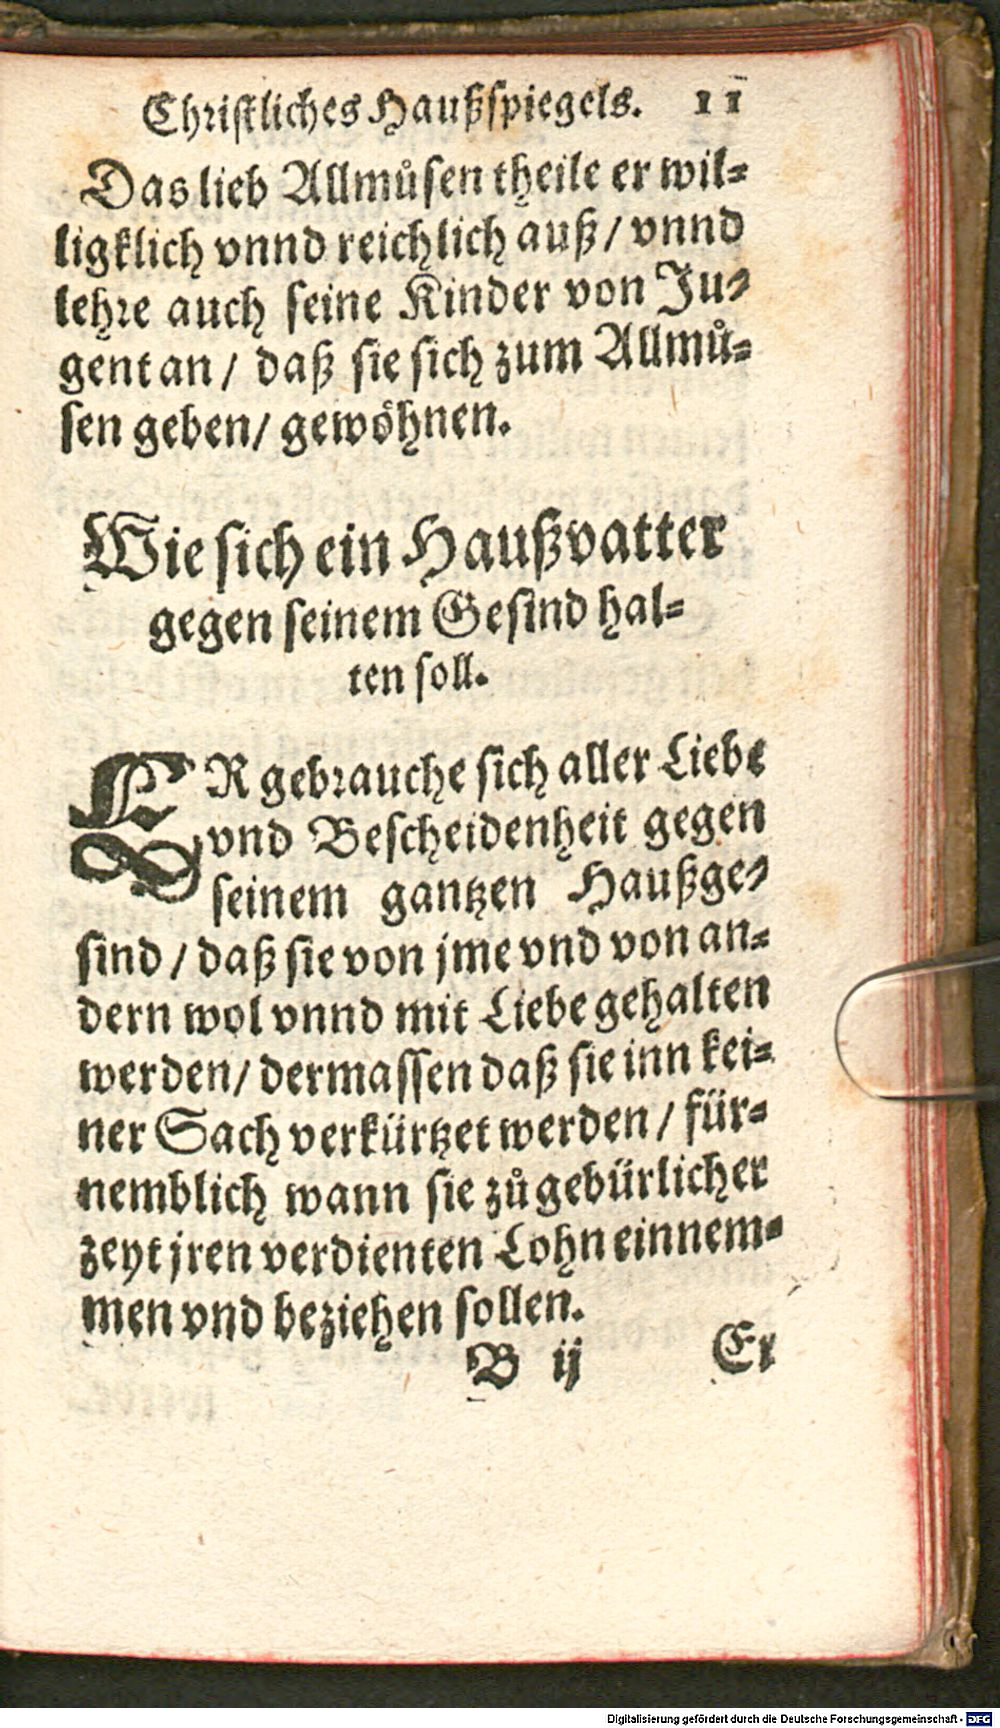 Christliches Haußspiegels. 11
Das lieb Allmůsen theile er wil⸗
ligklich vnnd reichlich auß / vnnd
lehre auch seine Kinder von Ju⸗
gent an / daß sie sich zum Allmů⸗
sen geben / gewöhnen.
Wie sich ein Haußvatter
gegen seinem Gesind hal⸗
ten soll.
ER gebrauche sich aller Liebe
vnd Bescheidenheit gegen
seinem gantzen Haußge⸗
sind / daß sie von jme vnd von an⸗
dern wol vnnd mit Liebe gehalten
werden / dermassen daß sie inn kei⸗
ner Sach verkürtzet werden / für⸗
nemblich wann sie zů gebürlicher
zeyt jren verdienten Lohn einnem⸗
men vnd beziehen sollen.
B ij Er
Digitalisierung gefördert durch die Deutsche Forschungsgemeinschaft - DFG